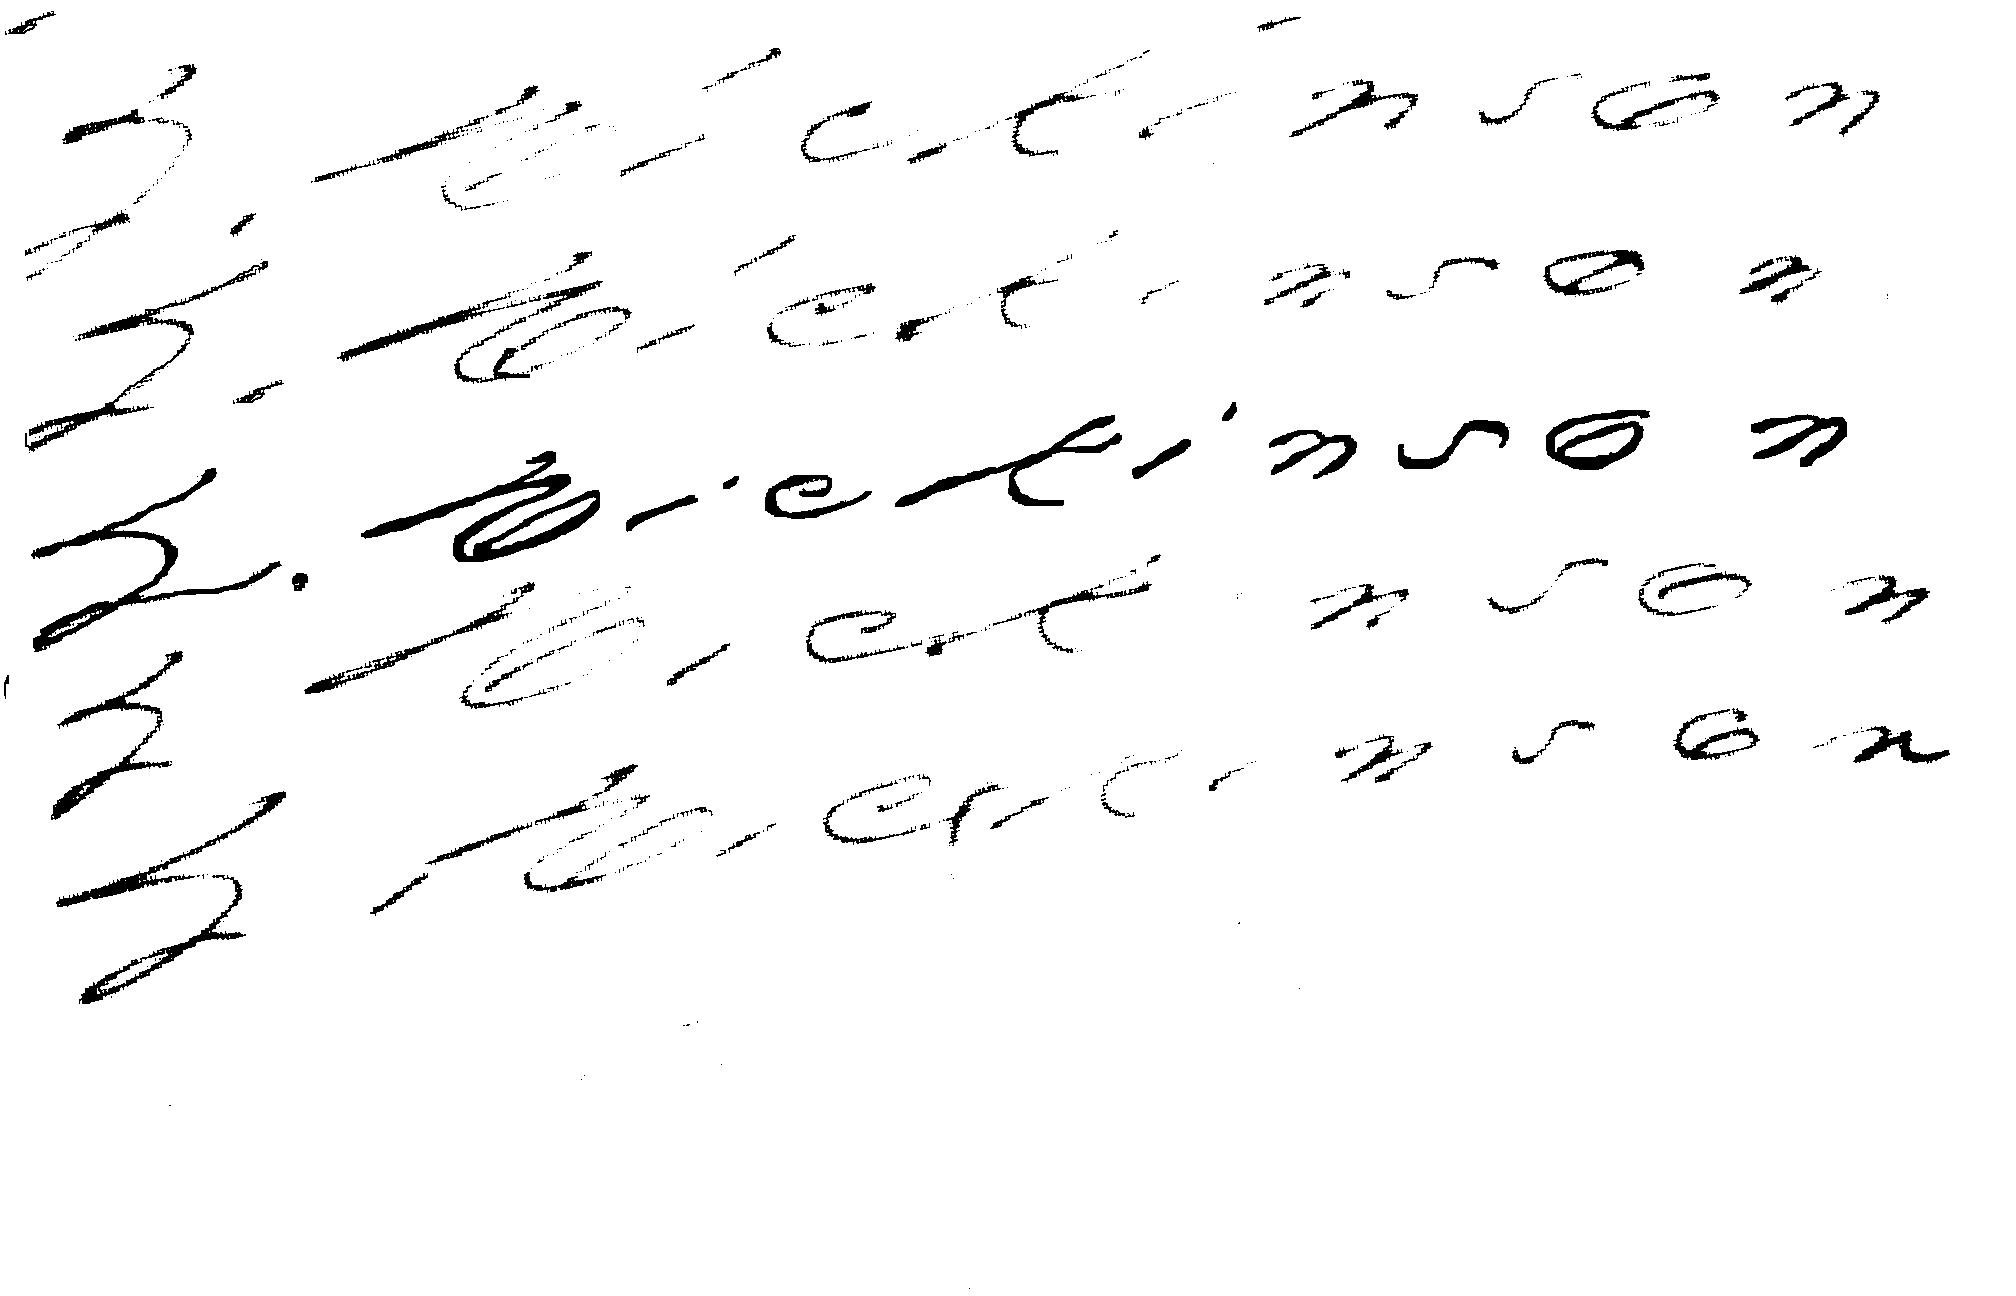 E. Dickinson
E. Dickinson
E. Dickinson
E Dickinson
E Dickinson